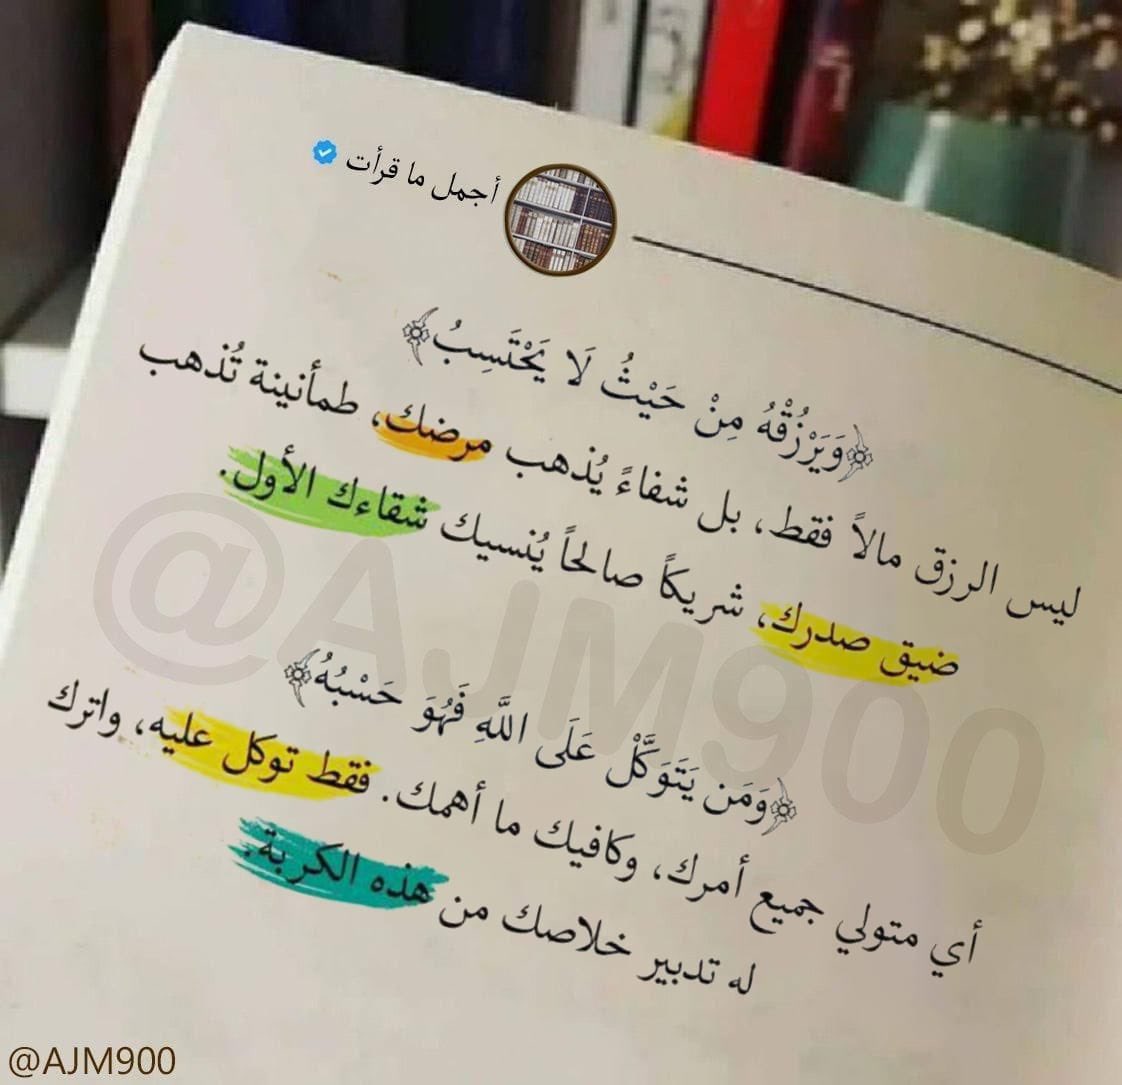 أجمل ما قرأت
﴿وَيَرْزُقْهُ مِنْ حَيْثُ لَا يَحْتَسِبُ﴾
ليس الرزق مالاً فقط، بل شفاءً يُذهب مرضك، طمأنينة تُذهب
ضيق صدرك، شريكاً صالحاً يُنسيك شقاءك الأول.
﴿وَمَن يَتَوَكَّلْ عَلَى اللَّهِ فَهُوَ حَسْبُهُ﴾
أي متولي جميع أمرك، وكافيك ما أهمك. فقط توكل عليه، واترك
له تدبير خلاصك من هذه الكربة.
@AJM900
@AJM900